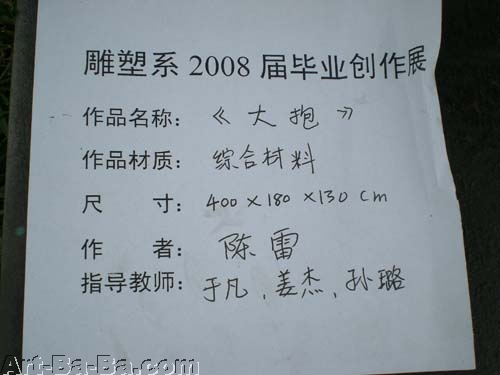 雕塑系 2008 届毕业创作展
作品名称：《大抱》
作品材质：综合材料
尺　　寸：400×180×130cm
作　　者：陈雷
指导教师：于凡、姜杰、孙璐
Art-Ba-Ba.com